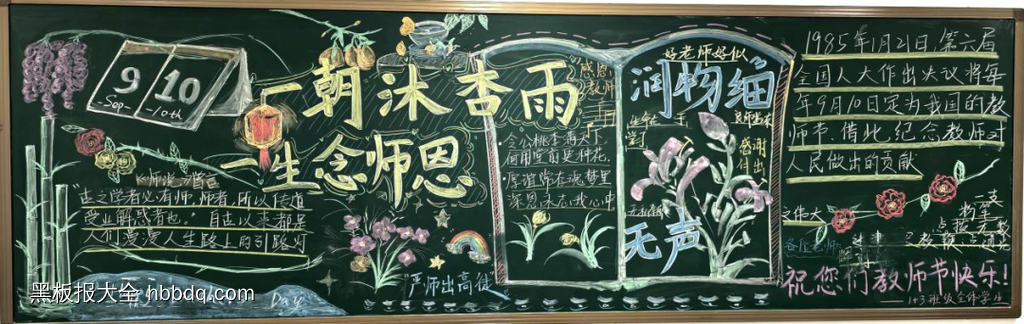 9
Sep
10
10th
一朝沐杏雨
一生念师恩
《师说》有言
"古之学者必有师,师者,所以传道
受业解惑者也。"自古以来都是
人们漫漫人生路上的引路灯
"严师出高徒"
Day
感恩
教师
令公桃李满天下
何用堂前更种花
厚谊常在魂梦里
深恩永志我心中
好老师好似
润物细
无声
感谢
付出
1985年1月21日,第六届
全国人大作出决议将每
年9月10日定为我国的教
师节.借此,纪念教师对
人民做出的贡献
之伟大
一支
粉笔
点拨
各位老师
祝您们教师节快乐!
——1+3班级全体学生
黑板报大全 hbbdq.com